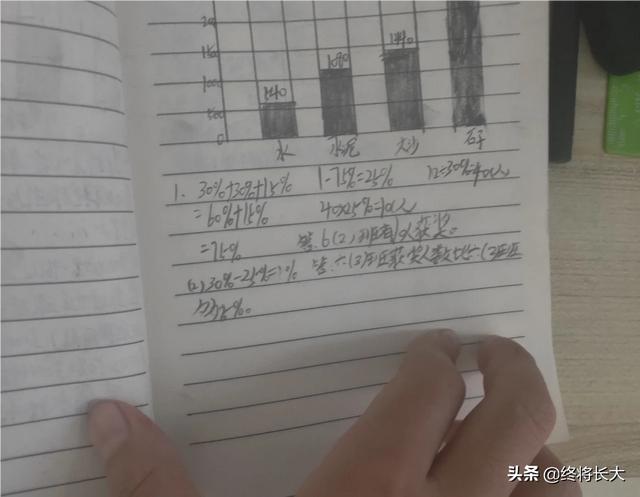 200
150
1440
1080
100
540
500
0
水 水泥 大沙 石子
1. 30%+30%+15% 1-75%=25% 12÷30%=40(人)
=60%+15% 40×25%=10(人)
=75% 答:6(2)班有10人获奖。
(2)30%-25%=5% 答:六(3)班获奖人数比六(2)班
多5%。
头条 @终将长大